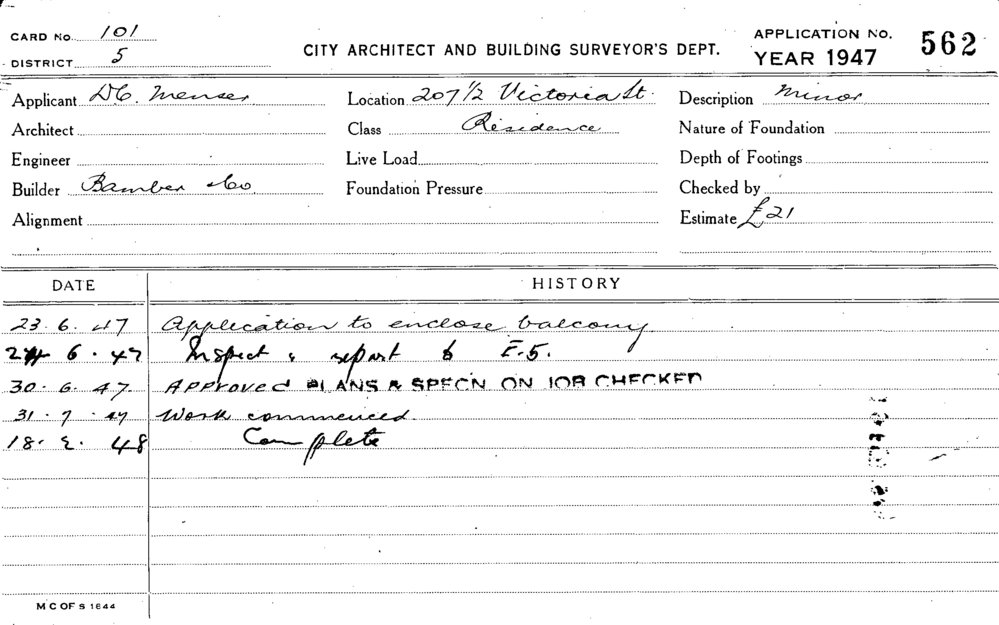 CARD No. 101
DISTRICT 5
CITY ARCHITECT AND BUILDING SURVEYOR'S DEPT.
APPLICATION No. 562
YEAR 1947
Applicant D C. Menser Location 207 1/2 Victoria St. Description Minor
Architect Class Residence Nature of Foundation
Engineer Live Load Depth of Footings
Builder Bamber & Co. Foundation Pressure Checked by
Alignment Estimate £21
DATE HISTORY
23.6.47 Application to enclose balcony
24.6.47 Inspect & report to F.5.
30.6.47. APPROVED PLANS & SPECN ON JOB CHECKED
31.7.47 Work commenced
18. 2. 48 Complete
M C OF S 1644